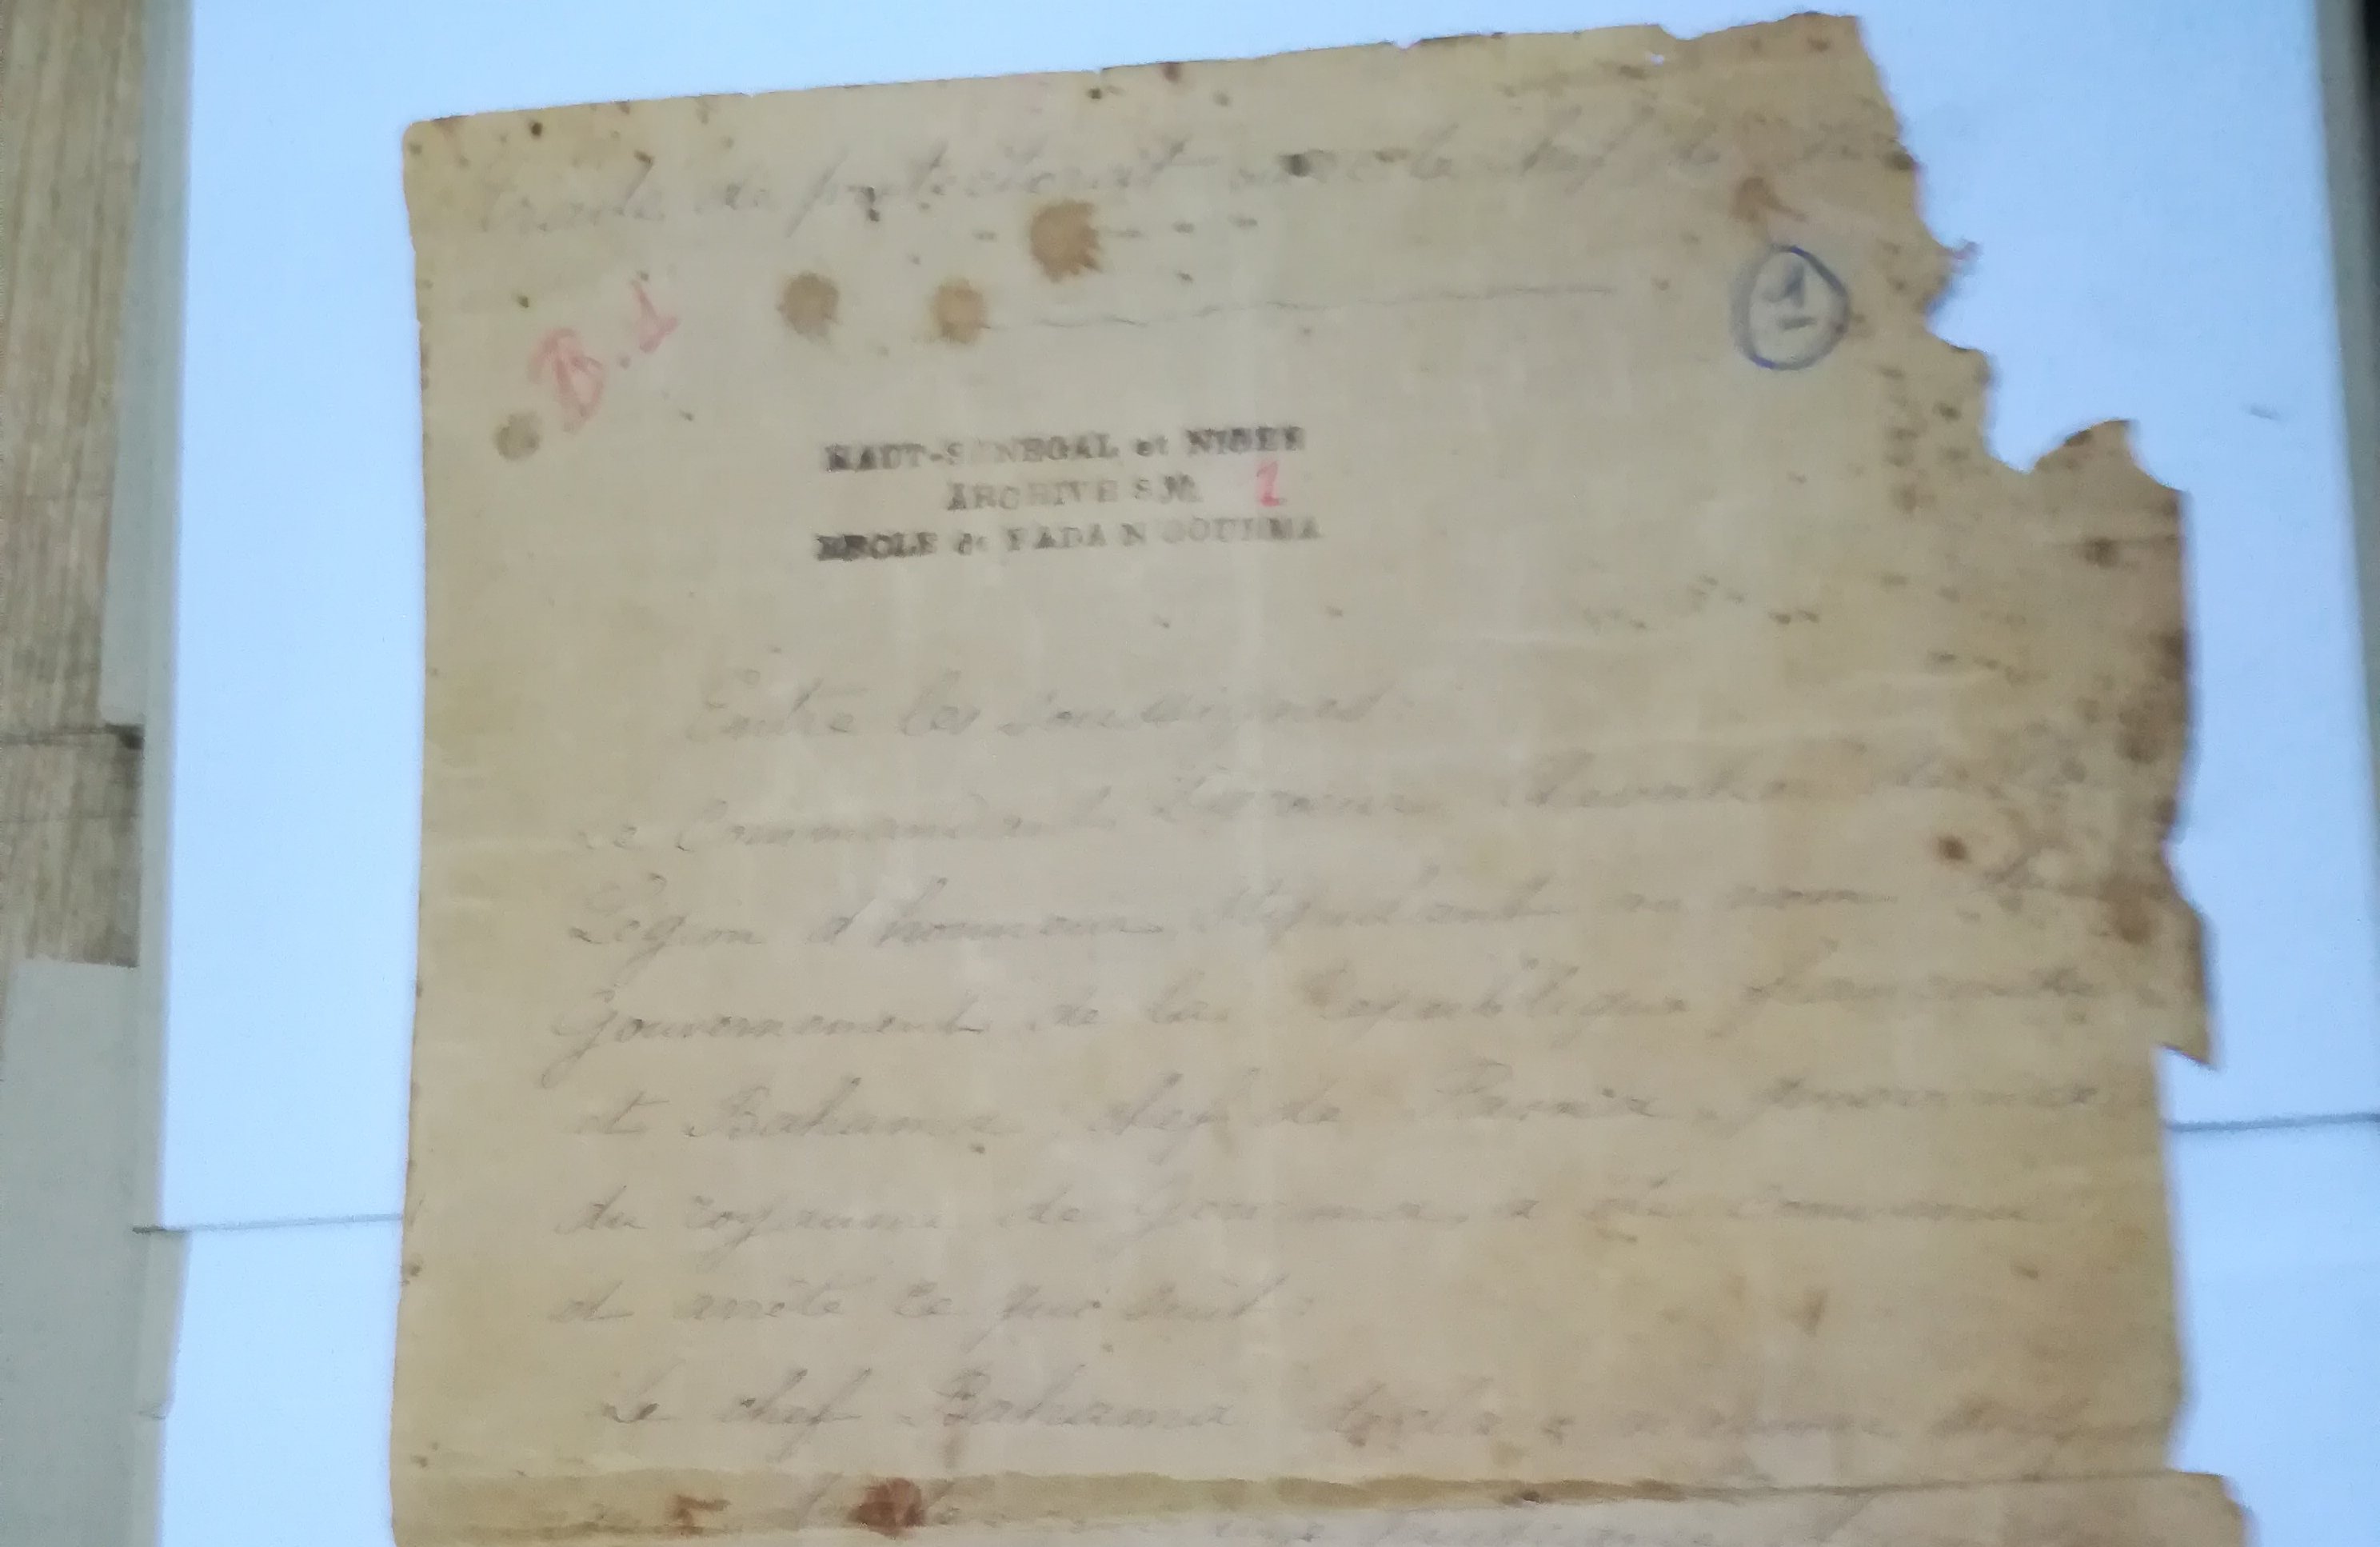 Traité de protectorat avec le chef de
B. 1
1
HAUT-SÉNÉGAL et NIGER
ARCHIVES No 1
CERCLE de FADA N GOURMA
Entre les soussignés
Le Commandant Chevalier de
Légion d'honneur Stipulant au nom
Gouvernement de la République française
et Bahama chef de
du royaume de Gourma, a été convenu
et arrêté ce qui suit :
Le chef Bahama déclare